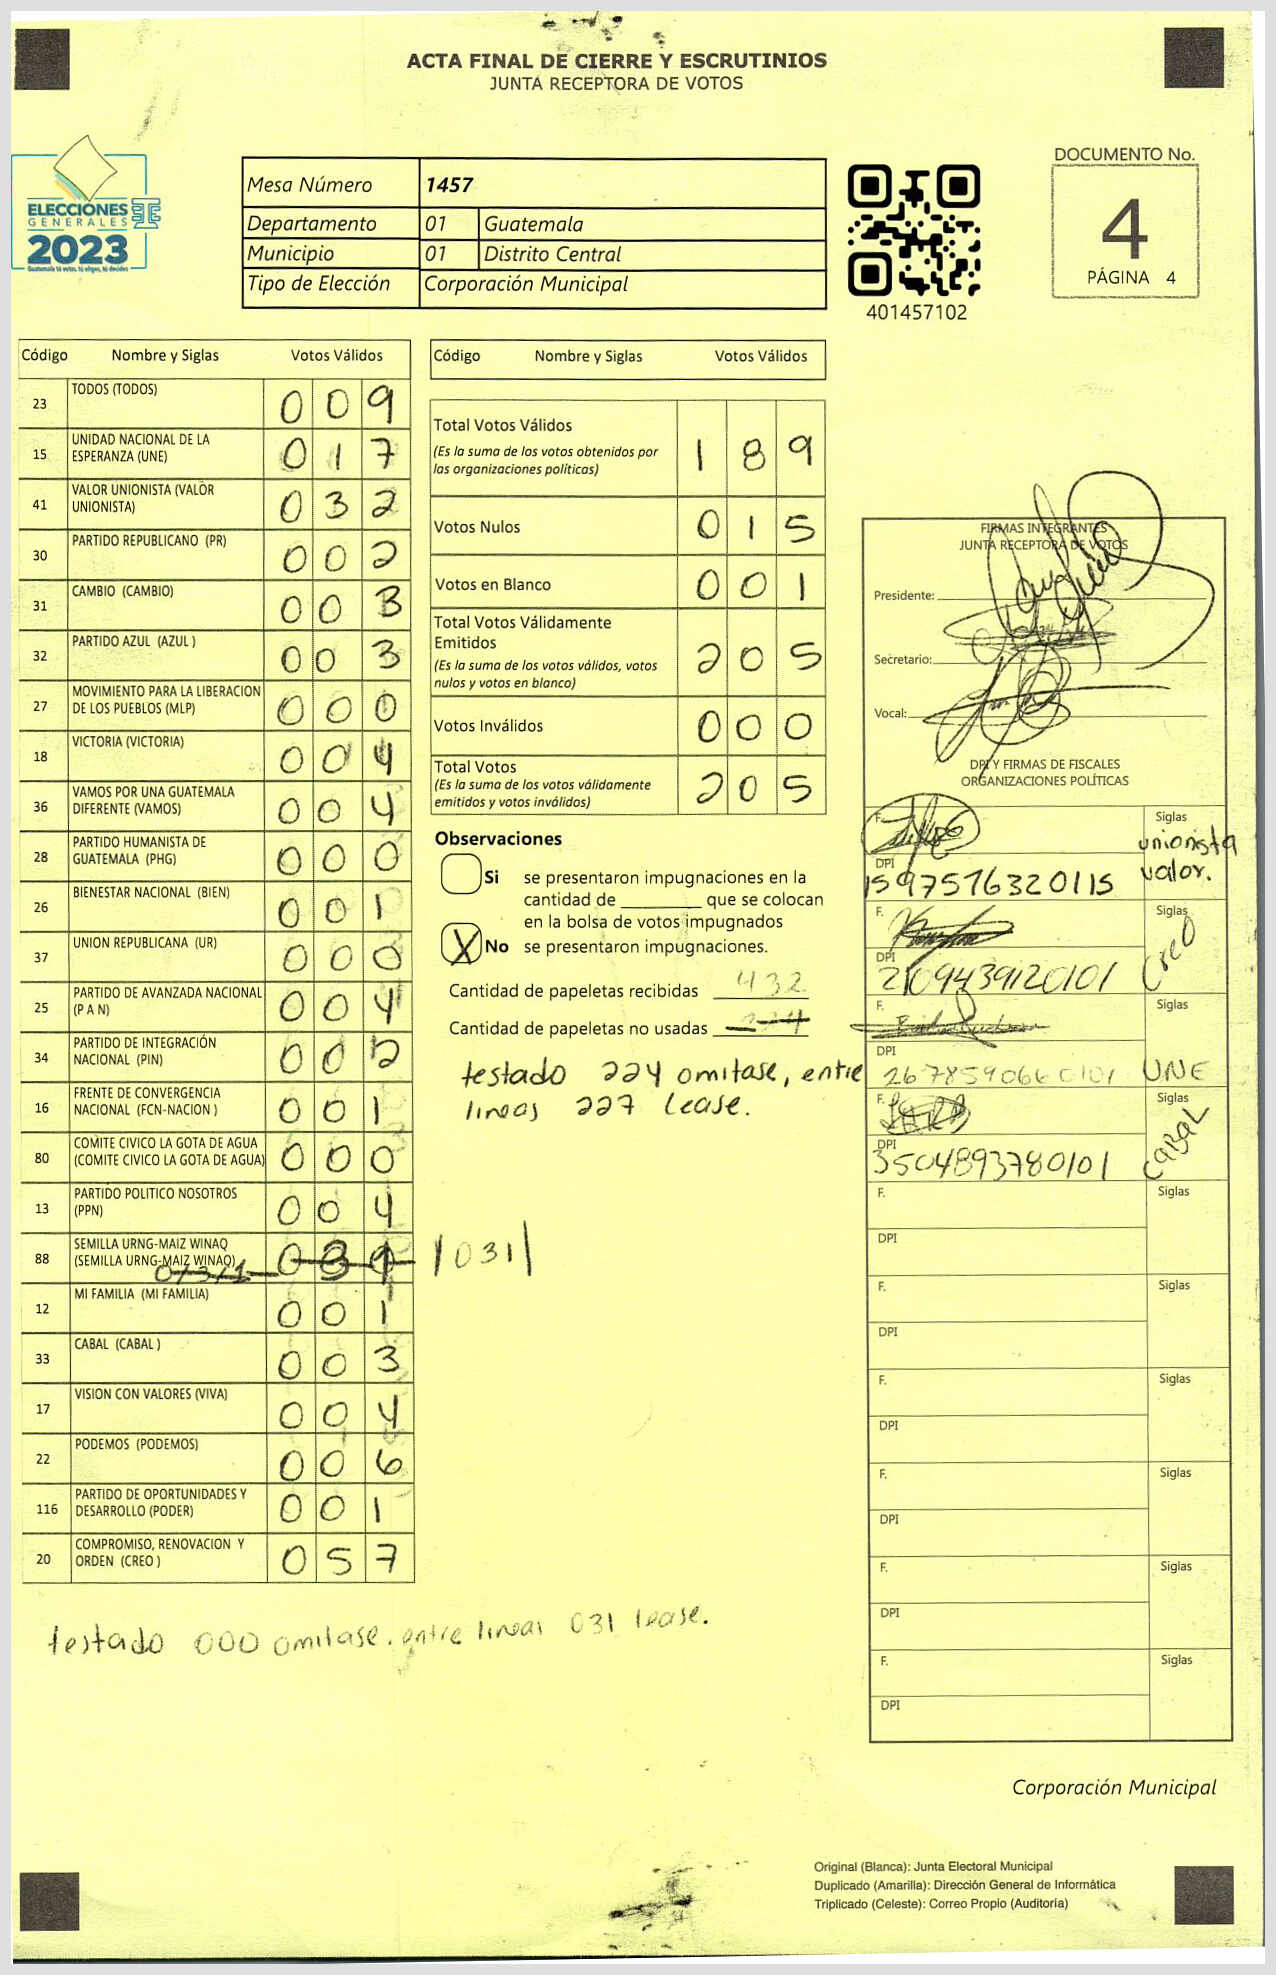 ACTA FINAL DE CIERRE Y ESCRUTINIOS
JUNTA RECEPTORA DE VOTOS
ELECCIONES
GENERALES
2023
Guatemala tú votas, tú eliges, tú decides
Mesa Número 1457
Departamento 01 Guatemala
Municipio 01 Distrito Central
Tipo de Elección Corporación Municipal
401457102
DOCUMENTO No.
4
PÁGINA 4
Código Nombre y Siglas Votos Válidos
23 TODOS (TODOS) 0 0 9
15 UNIDAD NACIONAL DE LA
ESPERANZA (UNE) 0 1 7
41 VALOR UNIONISTA (VALOR
UNIONISTA) 0 3 2
30 PARTIDO REPUBLICANO (PR) 0 0 2
31 CAMBIO (CAMBIO) 0 0 3
32 PARTIDO AZUL (AZUL ) 0 0 3
27 MOVIMIENTO PARA LA LIBERACION
DE LOS PUEBLOS (MLP) 0 0 0
18 VICTORIA (VICTORIA) 0 0 4
36 VAMOS POR UNA GUATEMALA
DIFERENTE (VAMOS) 0 0 4
28 PARTIDO HUMANISTA DE
GUATEMALA (PHG) 0 0 0
26 BIENESTAR NACIONAL (BIEN) 0 0 1
37 UNION REPUBLICANA (UR) 0 0 0
25 PARTIDO DE AVANZADA NACIONAL
(P A N) 0 0 4
34 PARTIDO DE INTEGRACIÓN
NACIONAL (PIN) 0 0 2
16 FRENTE DE CONVERGENCIA
NACIONAL (FCN-NACION ) 0 0 1
80 COMITE CIVICO LA GOTA DE AGUA
(COMITE CIVICO LA GOTA DE AGUA) 0 0 0
13 PARTIDO POLITICO NOSOTROS
(PPN) 0 0 4
88 SEMILLA URNG-MAIZ WINAQ
(SEMILLA URNG-MAIZ WINAQ) |031|
0/3/1
12 MI FAMILIA (MI FAMILIA) 0 0 1
33 CABAL (CABAL ) 0 0 3
17 VISION CON VALORES (VIVA) 0 0 4
22 PODEMOS (PODEMOS) 0 0 6
116 PARTIDO DE OPORTUNIDADES Y
DESARROLLO (PODER) 0 0 1
20 COMPROMISO, RENOVACION Y
ORDEN (CREO ) 0 5 7
testado 000 omitase. entre lineas 031 lease.
Código Nombre y Siglas Votos Válidos
Total Votos Válidos 1 8 9
(Es la suma de los votos obtenidos por
las organizaciones políticas)
Votos Nulos 0 1 5
Votos en Blanco 0 0 1
Total Votos Válidamente
Emitidos 2 0 5
(Es la suma de los votos válidos, votos
nulos y votos en blanco)
Votos Inválidos 0 0 0
Total Votos 2 0 5
(Es la suma de los votos válidamente
emitidos y votos inválidos)
Observaciones
Si se presentaron impugnaciones en la
cantidad de ________ que se colocan
en la bolsa de votos impugnados
X No se presentaron impugnaciones.
Cantidad de papeletas recibidas 432
Cantidad de papeletas no usadas
testado 224 omitase, entre
lineas 227 lease.
FIRMAS INTEGRANTES
JUNTA RECEPTORA DE VOTOS
Presidente:
Secretario:
Vocal:
DPI Y FIRMAS DE FISCALES
ORGANIZACIONES POLÍTICAS
F. Siglas
unionista
valor.
DPI
1597576320115
F. Siglas
Creo
DPI
2109439120101
F. Siglas
DPI
2678590660101 UNE
F. Siglas
CABAL
DPI
3504893780101
F. Siglas
DPI
F. Siglas
DPI
F. Siglas
DPI
F. Siglas
DPI
F. Siglas
DPI
F. Siglas
DPI
Corporación Municipal
Original (Blanca): Junta Electoral Municipal
Duplicado (Amarilla): Dirección General de Informática
Triplicado (Celeste): Correo Propio (Auditoría)